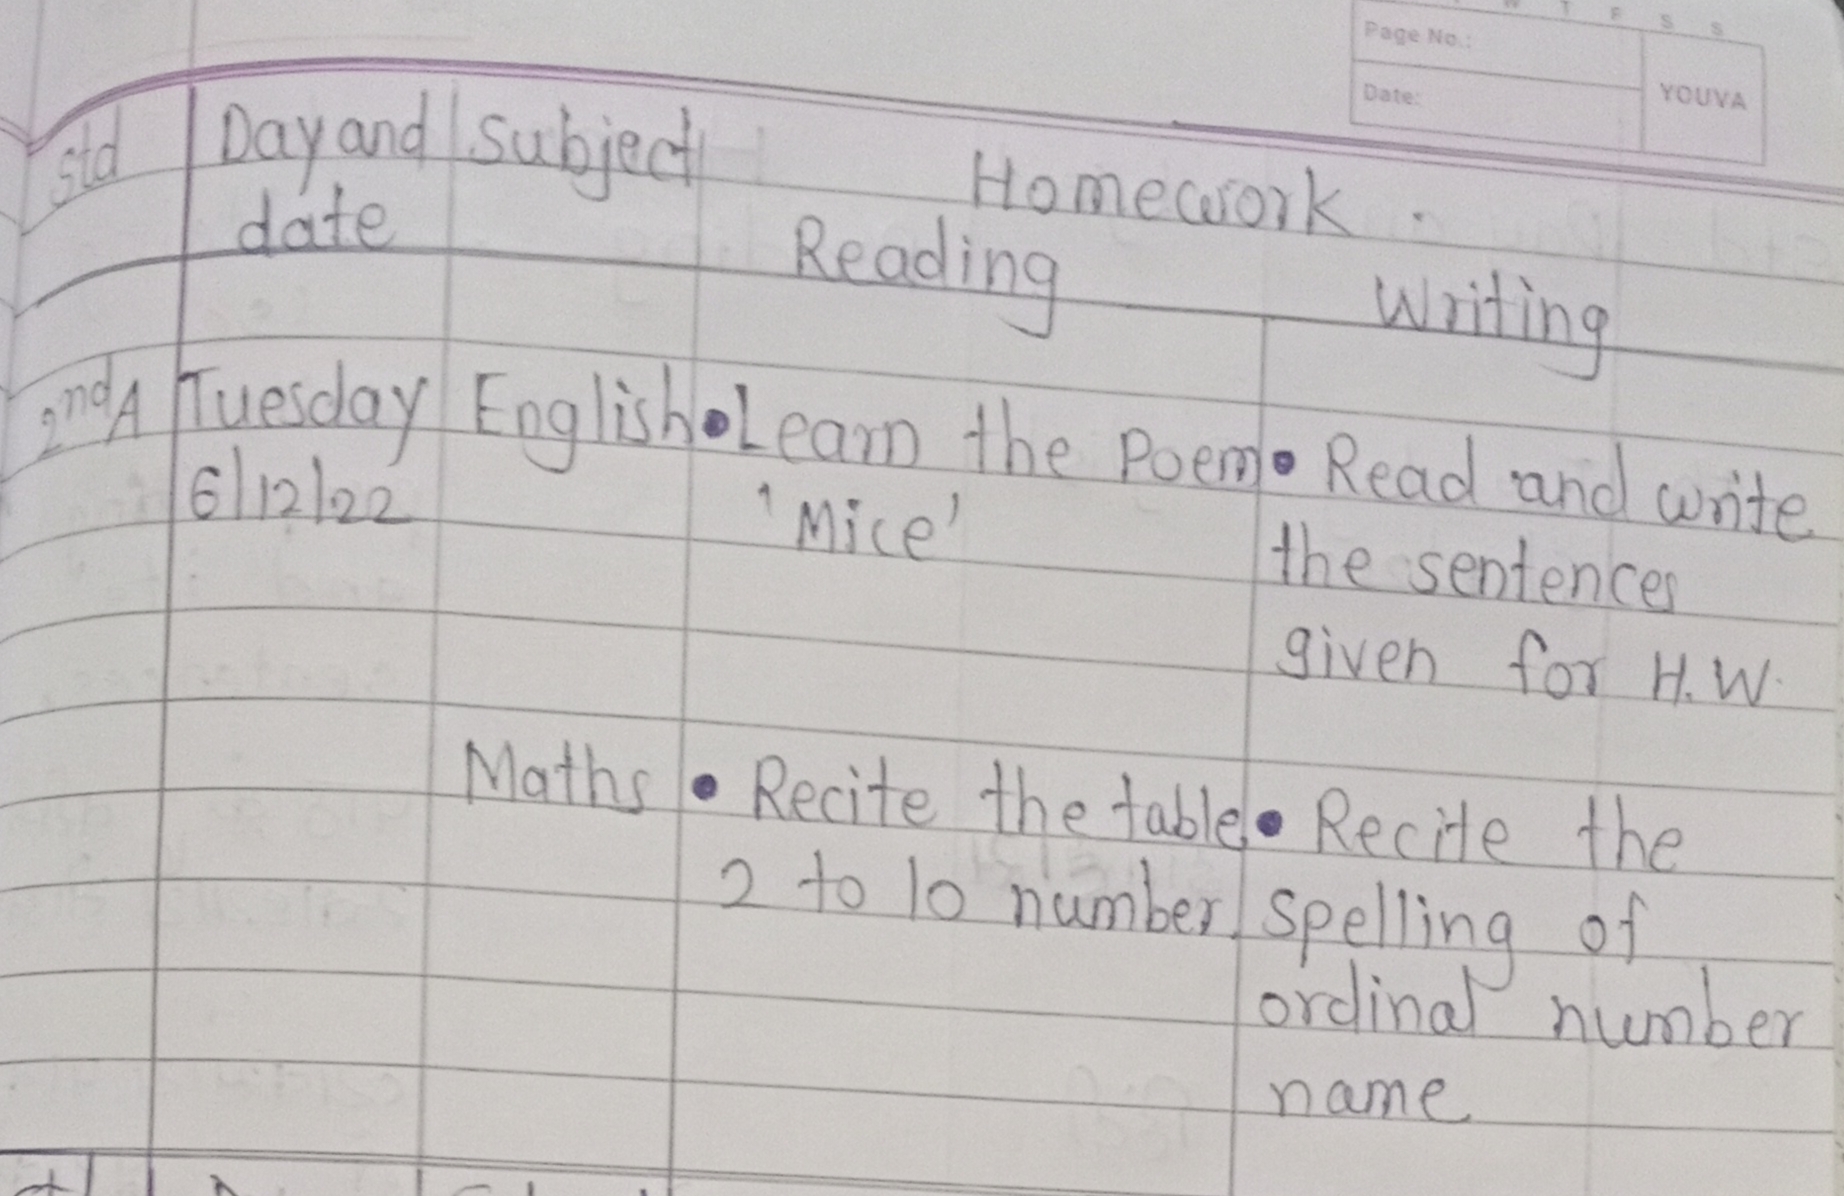 W T F S S
Page No.:
Date:
YOUVA
std Day and Subject Homework.
date Reading Writing
2nd A Tuesday English • Learn the Poem • Read and write
6/12/22 'Mice' the sentences
given for H.W.
Maths • Recite the table • Recite the
2 to 10 number. spelling of
ordinal number
name